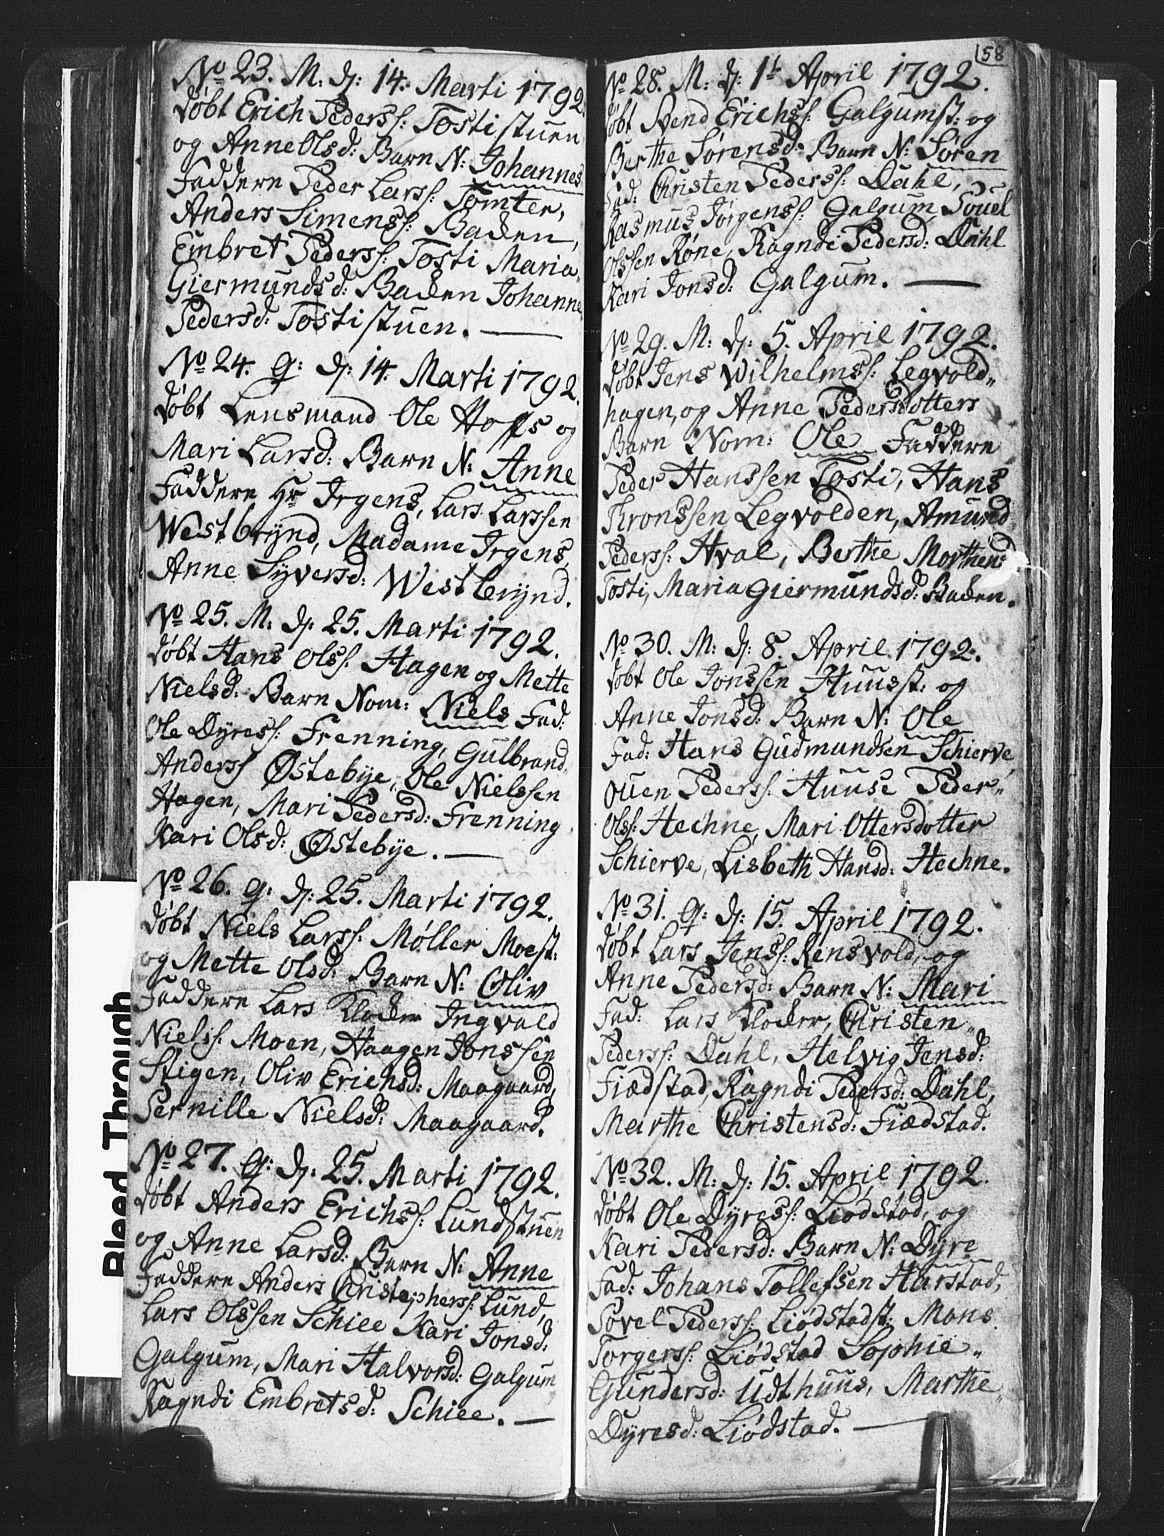 No 23. M. d: 14. Marti 1792.
døbt Erich Pederss: Tostistuen
og Anne Olsd: Barn N: Johannes
Faddere Peder Larss: Tomter,
Anders Simenss: Baden,
Embret Pederss: Tosti Maria
Giermundsd: Baden Johanne
Pedersd: Tostistuen. —
No 24. q: d: 14. Marti 1792.
døbt Lensmand Ole Hoffs og
Mari Larsd: Barn N: Anne
Faddere Hr Irgens, Lars Larssen
Westbrynd, Madame Irgens,
Anne Syversd: Westbrynd.
No 25. M. d. 25. Marti 1792.
døbt Hans Olss: Hagen og Mette
Nielsd: Barn Nom: Niels Fad:
Ole Dyress: Frenning, Gulbrand
Anderss Østebye, Ole Nielssen
Hagen, Mari Pedersd: Frenning
Kari Olsd: Østebye. —
No 26. q: d: 25. Marti 1792.
døbt Niels Larss: Møller Moest:
og Mette Olsd: Barn N: Oliv
Faddere Lars Klocker Ingvald
Nielss: Moen, Haagen Jonssen
Stigen, Oliv Erichsd: Maagaard,
Pernille Nielsd: Maagaard.
No 27. q: d: 25. Marti 1792.
døbt Anders Erichss: Lundstuen
og Anne Larsd: Barn N: Anne
Faddere Anders Christopherss: Lund,
Lars Olssen Schiee Kari Jonsd:
Galgum, Mari Halvorsd: Galgum
Ragndi Embretsd: Schiee. —
158
No 28. M: d: 1t April 1792.
døbt Svend Erichss: Galgumst: og
Berthe Sørensd: Barn N: Søren
Fad: Christen Pederss: Dahl,
Rasmus Jørgenss: Galgum, Souel
Olssen Røne, Ragndi Pedersd: Dahl
Kari Jonsd: Galgum. —
No 29. M: d: 5. April 1792.
døbt Jens Wilhelmss: Legvold„
hagen, og Anne Pedersdotters
Barn Nom: Ole Faddere
Peder Hanssen Tosti, Hans
Thronssen Legvolden, Amund
Pederss: Hval, Berthe Morthensd:
Tosti, Maria Giermundsd: Baden.
No 30. M: d: 8. April 1792.
døbt Ole Jonssen Huusst: og
Anne Jonsd: Barn N: Ole
Fad: Hans Gudmundsen Schierve
Ouen Pederss: Huuse Peder„
Olss: Hechne, Mari Ottersdotter
Schierve, Lisbeth Hansd: Hechne.
No 31. q: d: 15. April 1792.
døbt Lars Jenss: Rensvold, og
Anne Pedersd: Barn N: Mari
Fad: Lars Klocker, Christen„
Pederss: Dahl, Helvig Jensd:
Fiædstad, Ragndi Pedersd: Dahl,
Marthe Christensd: Fiædstad.
No 32. M: d: 15. April 1792.
døbt Ole Dyress: Liødstad, og
Kari Pedersd: Barn N: Dyre
Fad: Johans Tollefsen Harstad,
Sovel Pederss: Liødstadst: Mons
Torgerss: Liødstad Sophie„
Gundersd: Udthuus, Marthe
Dyresd: Liødstad. —
Bleed Through